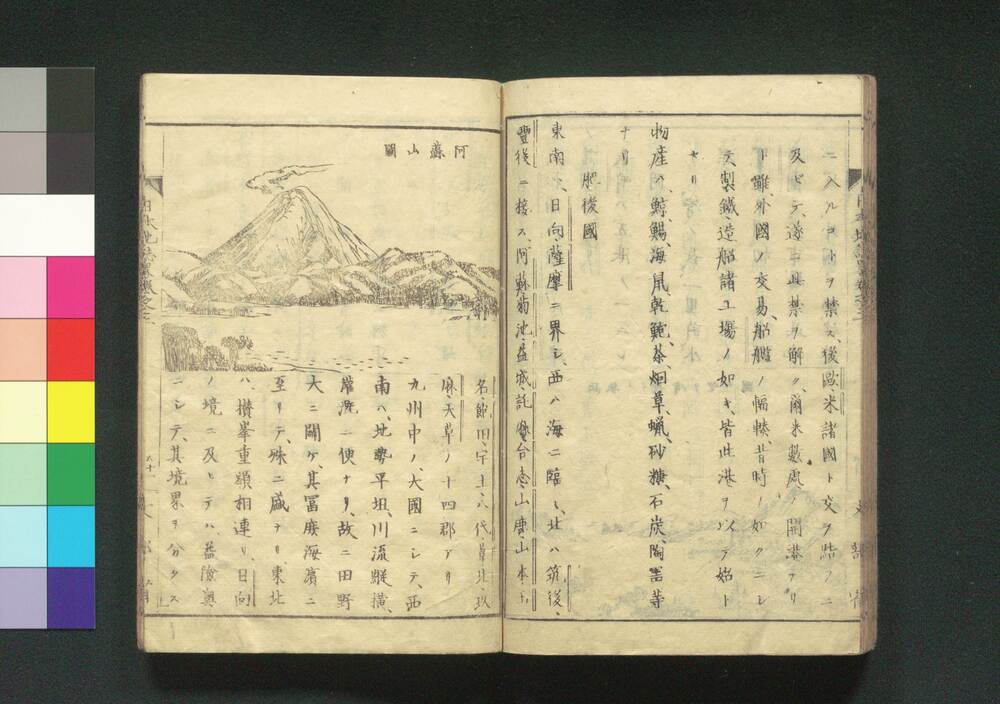 ニ入ルコトヲ禁ス、後歐米諸國ト交ヲ結フニ
及ヒテ、遂ニ其禁ヲ解ク、爾來數處ノ開港アリ
ト雖、外國ノ交易、船艦ノ輻輳、昔時ノ如クニシ
テ、製鐵、造船諸工場ノ如キ、皆此港ヲ以テ始ト
セリ
物産ハ、鯨、鯣、海鼠、乾鮑、茶、烟草、蠟、砂糖、石炭、陶器等
ナリ
肥後國
東南ハ、日向、薩摩ニ界シ、西ハ海ニ臨ミ、北ハ筑後、
豐後ニ接ス、阿蘇、菊池、益城、託麻、合志、山鹿、山本、玉
阿蘇山圖
名、飽田、宇土、八代、葦北、玖
麻、天草ノ十四郡アリ
九州中ノ大國ニシテ、西
南ハ、地勢平坦、川流縱横、
灌漑ニ便ナリ、故ニ田野
大ニ闢ケ、其富庶海濱ニ
至リテ、殊ニ盛ナリ、東北
ハ、攅峯重嶺相連リ、日向
ノ境ニ及ヒテハ益險奥
ニシテ、其境界ヲ分タス
文部省